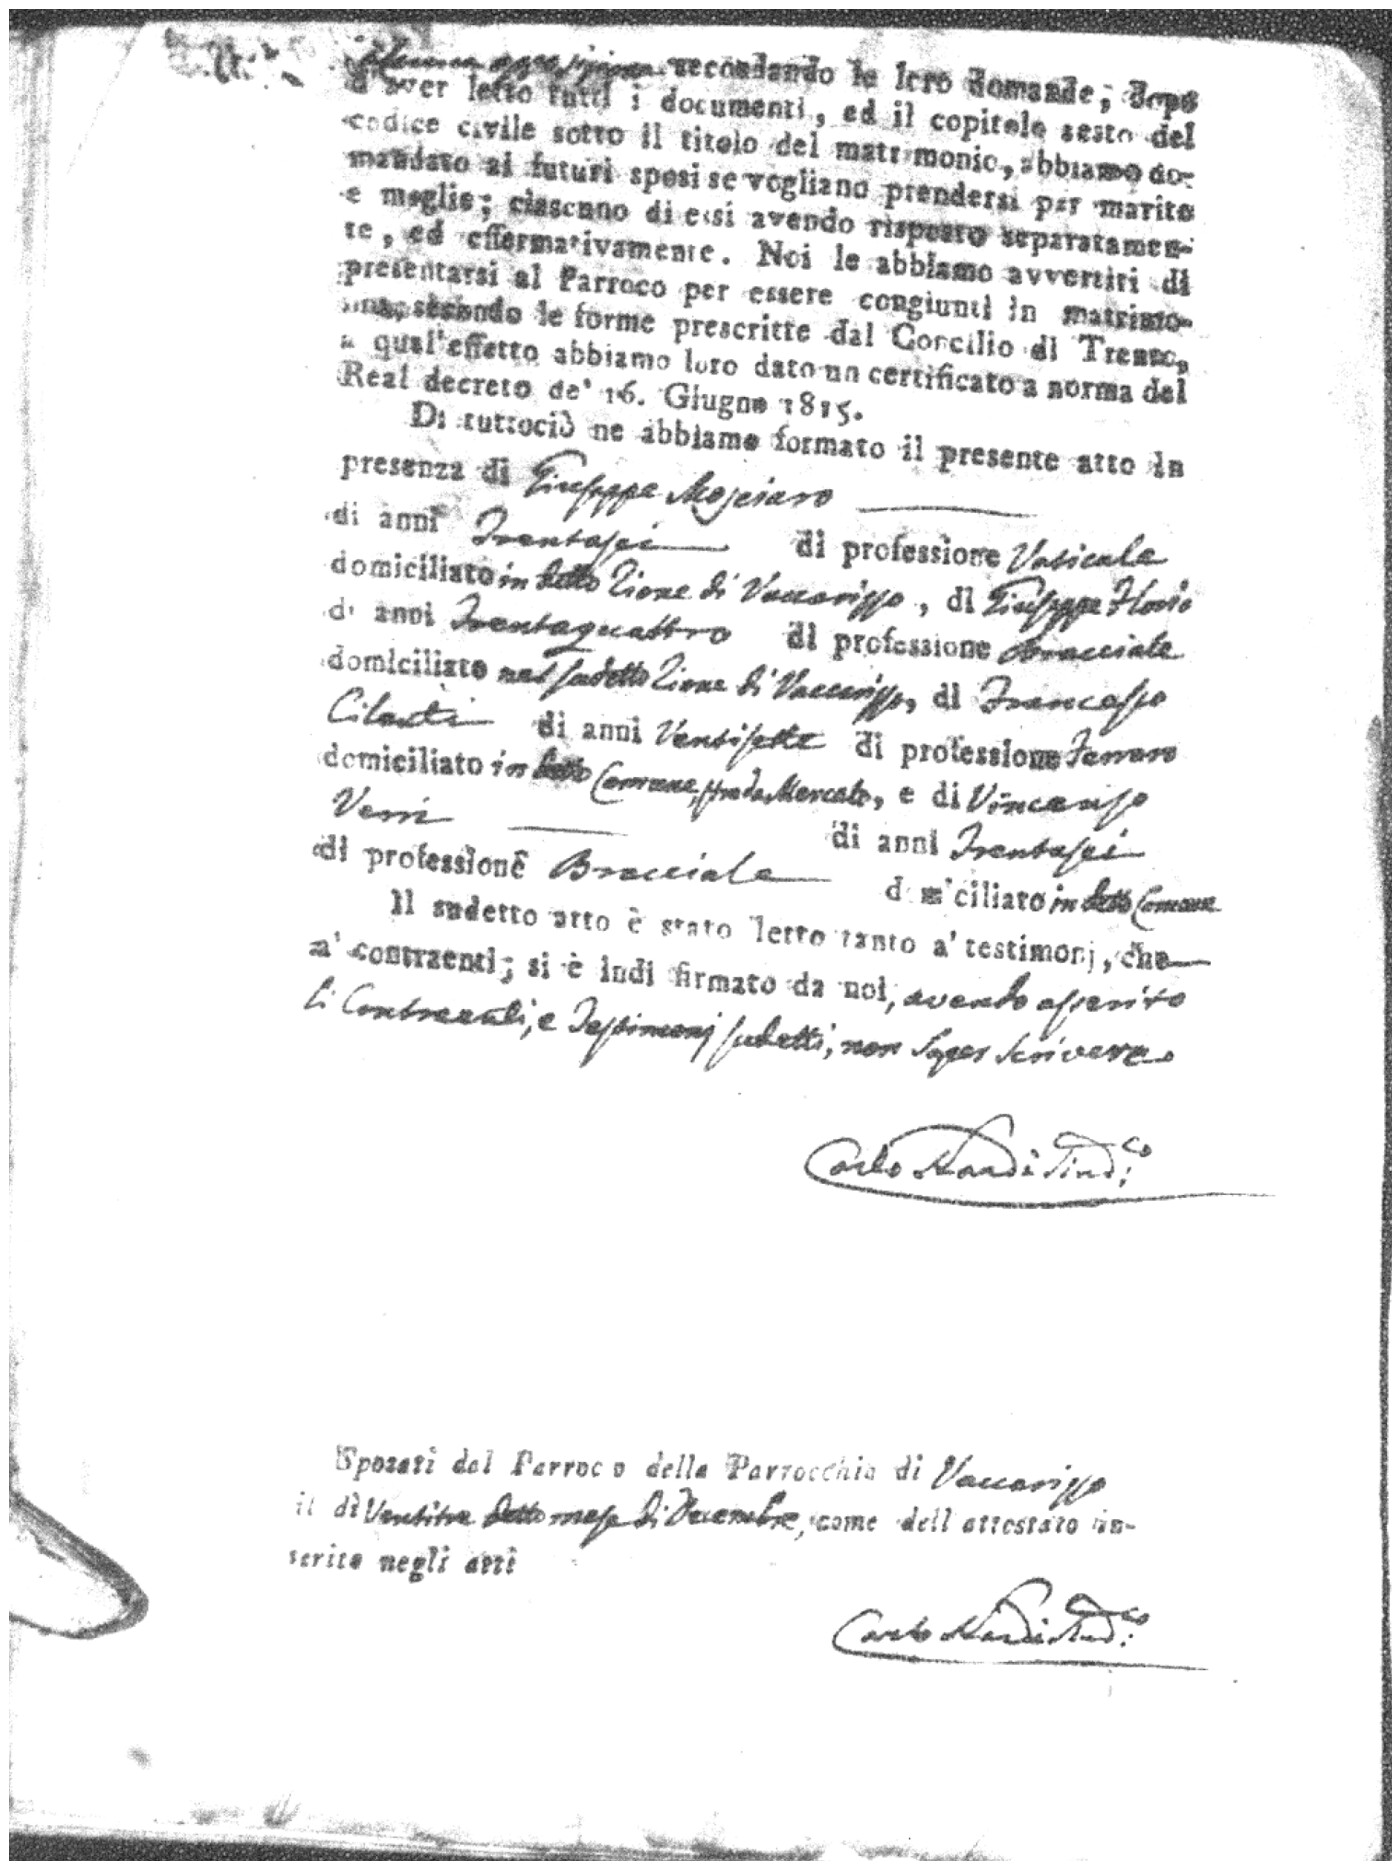 alcuna opposizione secondando le loro domande; dopo
d'aver letto tutti i documenti, ed il copitolo sesto del
codice civile sotto il titolo del matrimonio, abbiamo do-
mandato ai futuri sposi se vogliano prendersi per marito
e moglie; ciascuno di essi avendo risposto separatamen-
te, ed effermativamente. Noi le abbiamo avvertiti di
presentarsi al Parroco per essere congiunti in matrimo-
nio, secondo le forme prescritte dal Concilio di Trento,
a qual'effetto abbiamo loro dato un certificato a norma del
Real decreto de' 16. Giugno 1815.
Di tuttociò ne abbiamo formato il presente atto in
presenza di Giuseppe Mosciaro
di anni Trentasei di professione Vaticale
domiciliato in detto Rione di Vaccarizzo, di Giuseppe Florio
di anni Trentaquattro di professione Bracciale
domiciliato nel sudetto Rione di Vaccarizzo, di Francesco
di anni Ventisette di professione Ferraro
domiciliato in detto Comune, strada Mercato, e di Vincenzo
Verri di anni Trentasei
di professione Bracciale domiciliato in detto Comune
Il sudetto atto è stato letto tanto a' testimonj, che
a' contraenti; si è indi firmato da noi, avendo asserito
li Contraenti, e Testimonj sudetti, non saper scrivere
Carlo Nardi Sind.co
Sposati dal Parroco della Parrocchia di Vaccarizzo
il dì Ventitre detto mese di Decembre, come dell attestato in-
serito negli atti
Carlo Nardi Sind.co